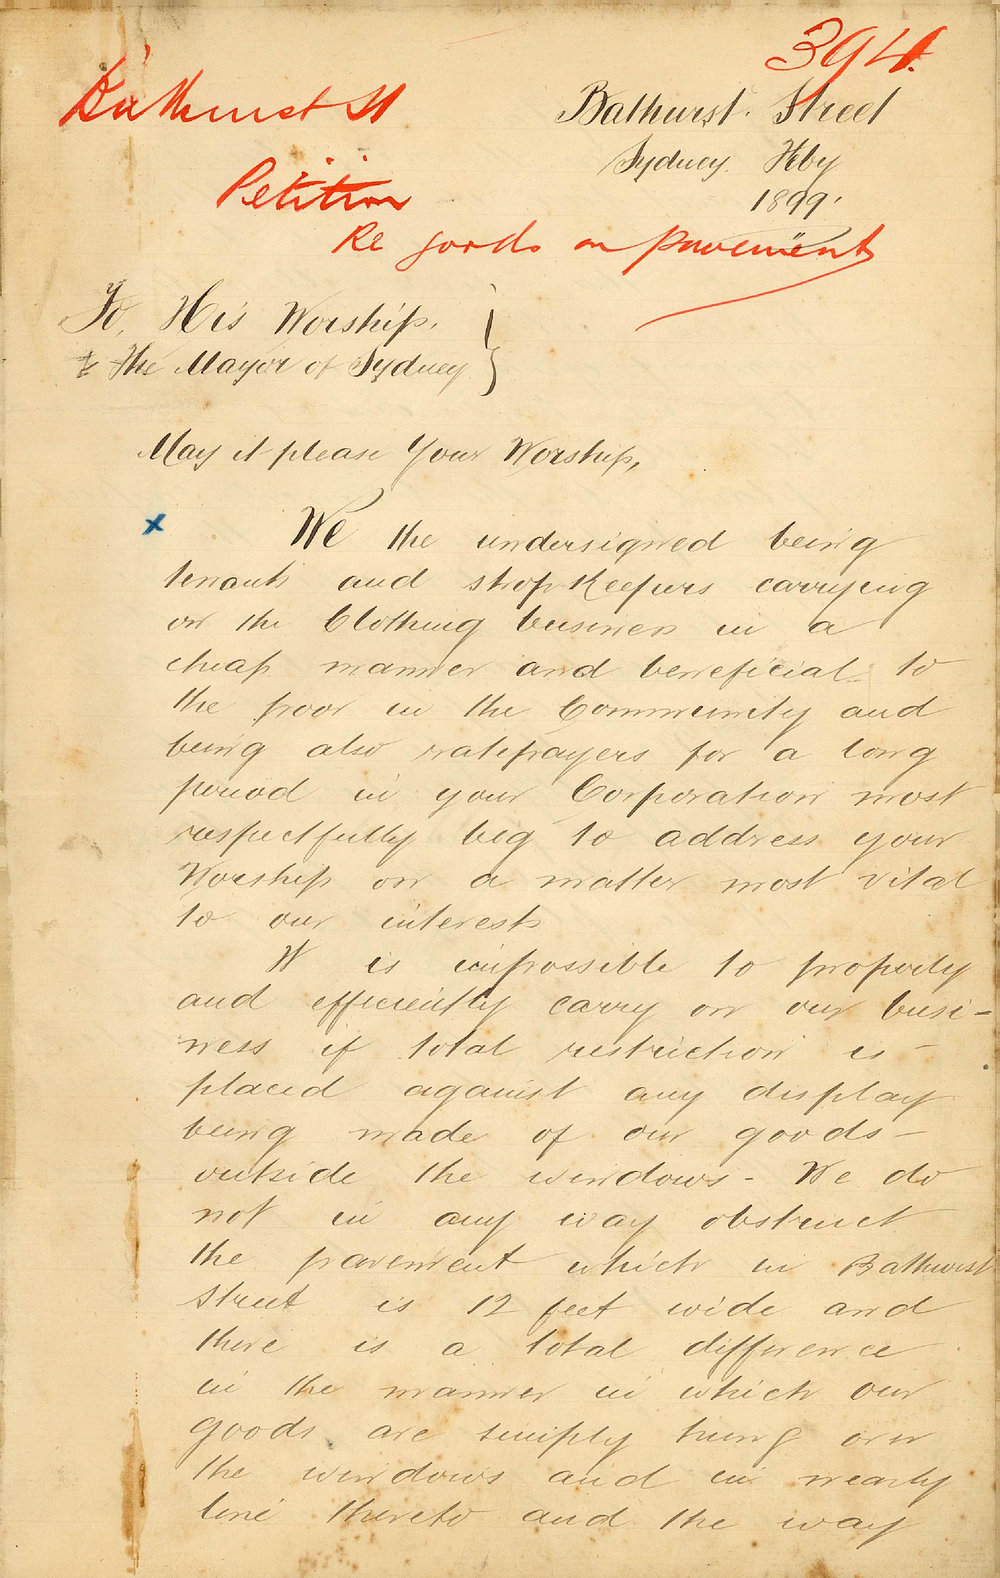 394.
Bathurst St
Bathurst. Street
Sydney. Feby
1899.
Petition
Re goods on pavement
To, His Worship.
The Mayor of Sydney
May it please Your Worship,
x We the undersigned being
tenants and shopkeepers carrying
on the Clothing business in a
cheap manner and beneficial to
the poor in the Community and
being also ratepayers for a long
period in your Corporation most
respectfully beg to address your
Worship on a matter most vital
to our interests
It is impossible to properly
and efficiently carry on our busi-
ness if total restriction is
placed against any display
being made of our goods -
outside the windows - We do
not in any way obstruct
the pavement which in Bathurst
Street is 12 feet wide and
there is a total difference
in the manner in which our
goods are simply hung on
the windows and in nearly
line thereto and the way